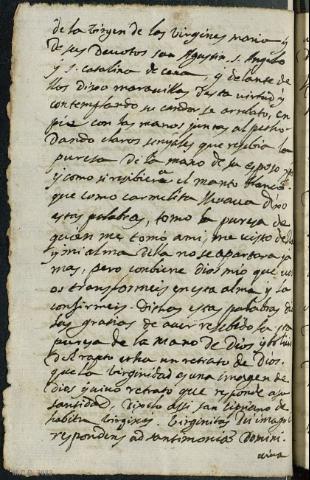 de la Virgen de las virgines maria y
de sus devotos san Agustin, s. Angelo
y s. catalina de cena, y delante de
llos dixo maravillas desta virtud y
contemplando su candor se arrebato, en
pie con las manos juntas al pecho
dando claros senyales que resebia la
puresa de la mano de su esposo
y como si resibiera el manto blanco
que como carmelita llevava dixo
estas palabras, tomo la puresa de
quien me tomó ami, me visto de
y mi alma della no se apartara ya
mas, pero conbiene Dios mio que vos
os transformeis en esta alma y la
confirmeis. dichas estas palabras
das grasias de aver resebido la
puresa de la mano de Dios y
del rapto echa un retrato de Dios.
que la virginidad es una imagen de
dios y vivo retrato que responde a su
santidad, dixolo assi san sipriano de
habitu virginis. Virginitas
respondens ad santimonias Domini.